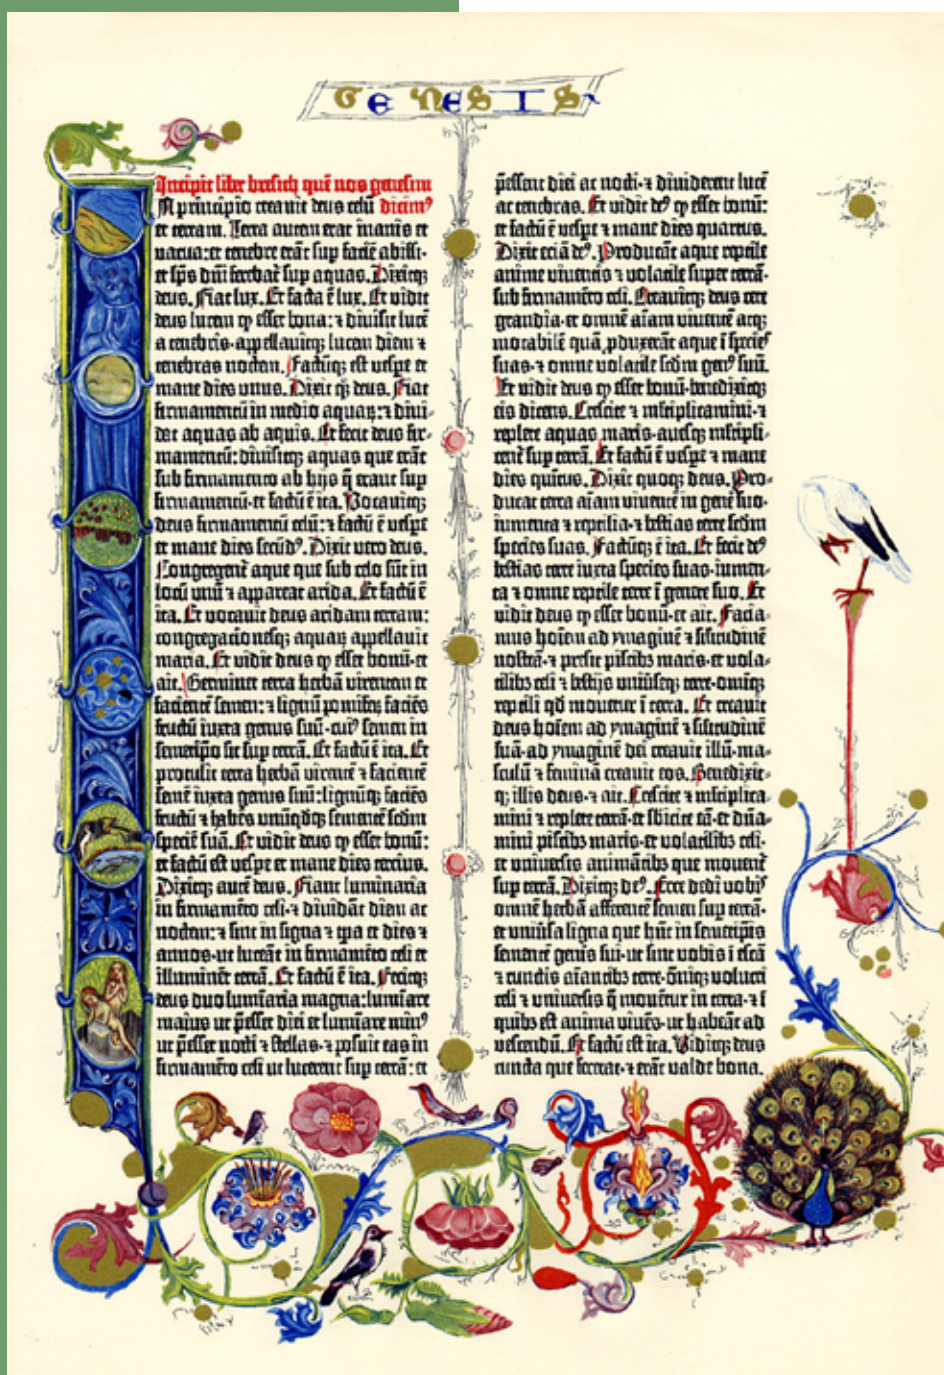 GENESIS
Incipit liber bresich quē nos genesim
In principio creavit deus celū dicimꝰ
et terram. Terra autem erat inanis et
vacua: et tenebre erāt sup faciē abissi:
et sp̄s dn̄i ferebat᷑ sup aquas. Dixitqꝫ
deus. Fiat lux. Et facta ē lux. Et vidit
deus lucem ꝙ esset bona: ⁊ divisit lucē
a tenebris. appellavitqꝫ lucem diem ⁊
tenebras noctem. Factūqꝫ est vespe et
mane dies unus. Dixit qꝫ deus. Fiat
firmamentū in medio aquaꝝ: ⁊ divi-
dat aquas ab aquis. Et fecit deus fir-
mamentū: divisitqꝫ aquas que erāt
sub firmamento ab hijs q̄ erant sup
firmamentū. et factū ē ita. Vocavitqꝫ
deus firmamentū celū: ⁊ factū ē vespe
et mane dies secūdꝰ. Dixit vero deus.
Congregent᷑ aque que sub celo sūt in
locū unū ⁊ appareat arida. Et factū ē
ita. Et vocavit deus aridam terram:
congregacionesqꝫ aquaꝝ appellavit
maria. Et vidit deus ꝙ esset bonū. et
ait. Germinet terra herbā virentem et
facientē semen: ⁊ lignū pomifeꝝ faciēs
fructū iuxta genus suū. cuiꝰ semen in
semetipo sit sup terrā. Et factū ē ita. Et
protulit terra herbā virentē ⁊ facientē
semē iuxta genus suū: lignūqꝫ faciēs
fructū ⁊ habēs unūqdqꝫ sementē scdm
speciē suā. Et vidit deus ꝙ esset bonū:
et factū est vespe et mane dies tercius.
Dixitqꝫ autē deus. Fiant luminaria
in firmamēto celi. ⁊ dividāt diem ac
noctem: ⁊ sint in signa ⁊ tp̄a et dies ⁊
annos. ut luceāt in firmamēto celi et
illuminēt terrā. Et factū ē ita. Fecitqꝫ
deus duo lumīaria magna: lumīare
maius ut p̄esset diei et lumīare minꝰ
ut p̄esset nocti ⁊ stellas. ⁊ posuit eas in
firmamēto celi ut lucerent sup terrā: et
p̄essent diei ac nocti. ⁊ dividerent lucē
ac tenebras. Et vidit deꝰ ꝙ esset bonū:
et factū ē vespe ⁊ mane dies quartus.
Dixit eciā deꝰ. Producāt aque reptile
anime viventis ⁊ volatile super terrā.
sub firmamēto celi. Creavitqꝫ deus cete
grandia. et omnē aīam viventē atqꝫ
motabilē quā ꝓduxerāt aque ī species
suas. ⁊ omne volatile scdm genꝰ suū.
Et vidit deus ꝙ esset bonū. benedixitqꝫ
eis dicens. Crescite ⁊ mltiplicamini. ⁊
replete aquas maris. avesqꝫ mltipli-
cent᷑ sup terrā. Et factū ē vespe ⁊ mane
dies quītus. Dixit quoqꝫ deus. Pro-
ducat terra aīam viventē in gene suo.
iumenta ⁊ reptilia. ⁊ bestias terre scdm
species suas. Factūqꝫ ē ita. Et fecit deꝰ
bestias terre iuxta species suas. iumen-
ta ⁊ omne reptile terre ī genere suo. Et
vidit deus ꝙ esset bonū. et ait. Facia-
mus hoīem ad ymaginē ⁊ silitudinē
nostrā. ⁊ presit piscibꝫ maris. et vola-
tilibꝫ celi ⁊ bestijs univseqꝫ terre. omīqꝫ
reptili qd movet᷑ ī terra. Et creavit
deus hoīem ad ymaginē ⁊ silitudinē
suā. ad ymaginē dei creavit illū. ma-
sculū ⁊ feminā creavit eos. Benedixit-
qꝫ illis deus. ⁊ ait. Crescite ⁊ mltiplica-
mini ⁊ replete terrā. et sbicite eā. et dn̄a-
mini piscibꝫ maris. et volatilibꝫ celi.
et universis animātibꝫ que movent᷑
sup terrā. Dixitqꝫ deꝰ. Ecce dedi vobis
omnē herbā afferentē semen sup terrā.
et univsa ligna que hn̄t in semetipis
sementē genis sui. ut sint vobis ī escā
⁊ cunctis aīantibꝫ terre. omīqꝫ volucri
celi ⁊ universis q̄ movētur in terra. ⁊ ī
quibꝫ est anima vivēs. ut habeāt ad
vescendū. Et factū est ita. Viditqꝫ deus
cuncta que fecerat. ⁊ erāt valde bona.